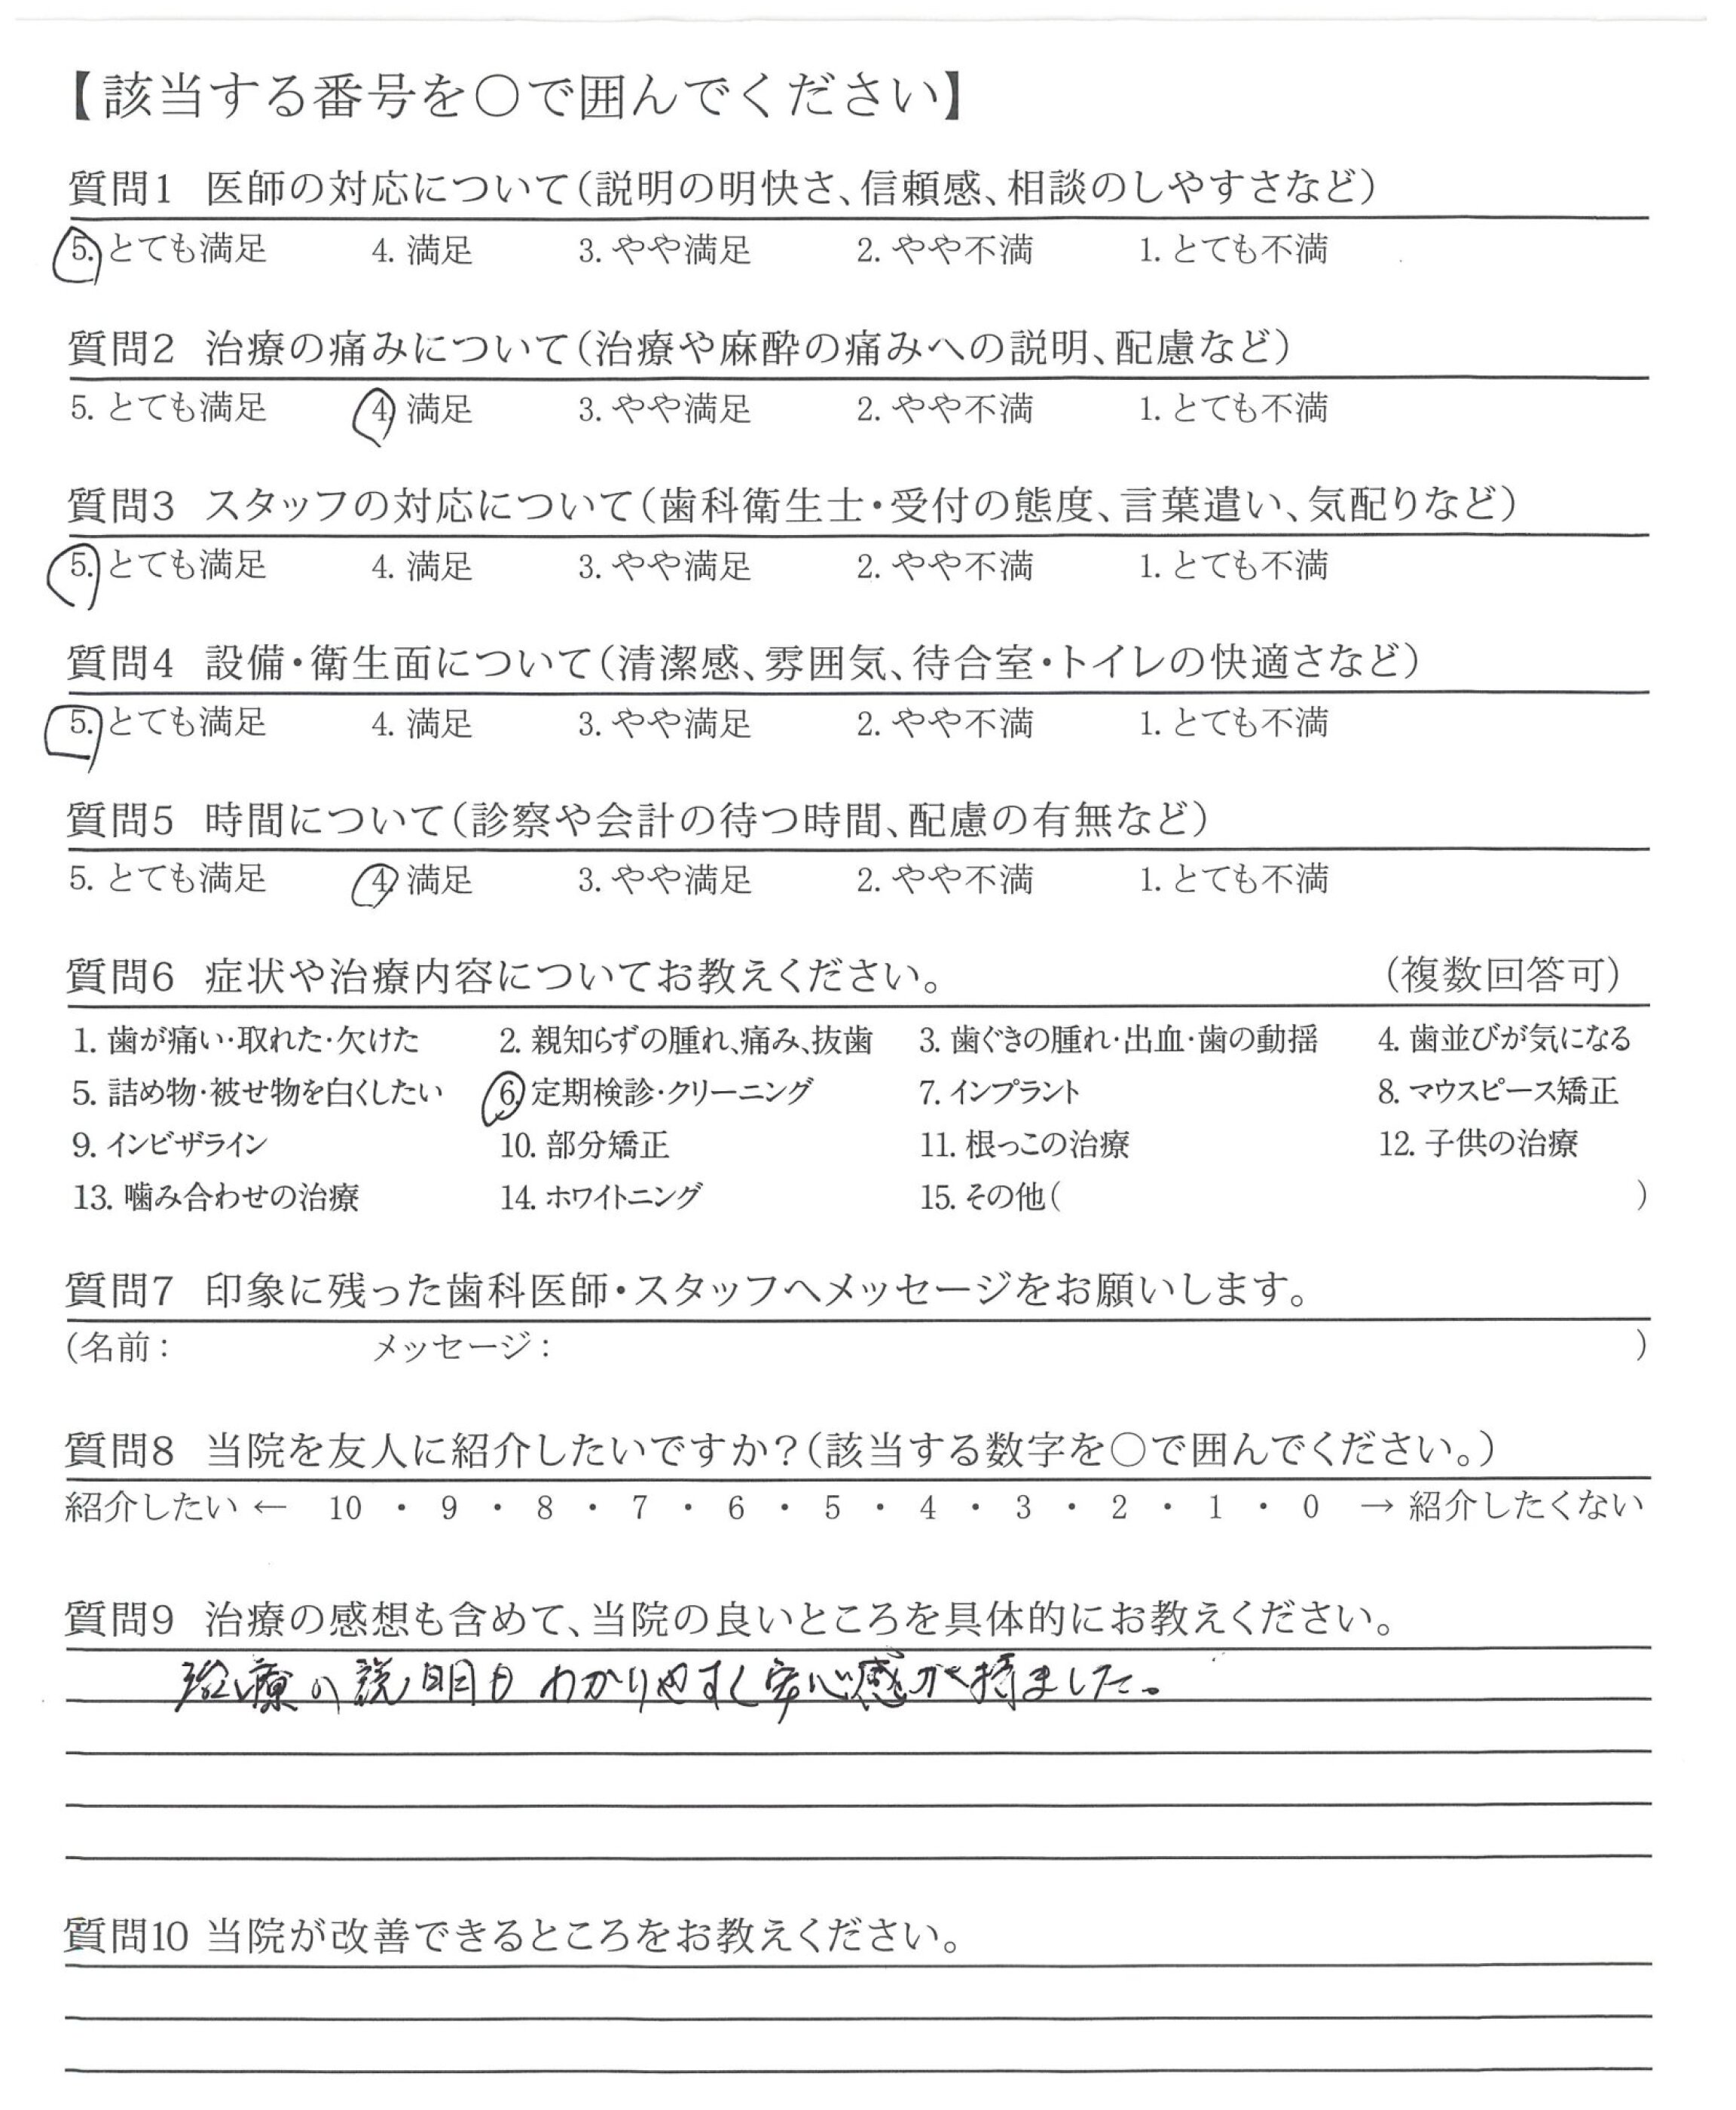 【該当する番号を○で囲んでください】
質問1 医師の対応について(説明の明快さ、信頼感、相談のしやすさなど)
5. とても満足 4. 満足 3. やや満足 2. やや不満 1. とても不満
質問2 治療の痛みについて(治療や麻酔の痛みへの説明、配慮など)
5. とても満足 4. 満足 3. やや満足 2. やや不満 1. とても不満
質問3 スタッフの対応について(歯科衛生士・受付の態度、言葉遣い、気配りなど)
5. とても満足 4. 満足 3. やや満足 2. やや不満 1. とても不満
質問4 設備・衛生面について(清潔感、雰囲気、待合室・トイレの快適さなど)
5. とても満足 4. 満足 3. やや満足 2. やや不満 1. とても不満
質問5 時間について(診察や会計の待つ時間、配慮の有無など)
5. とても満足 4. 満足 3. やや満足 2. やや不満 1. とても不満
質問6 症状や治療内容についてお教えください。 (複数回答可)
1. 歯が痛い・取れた・欠けた 2. 親知らずの腫れ、痛み、抜歯 3. 歯ぐきの腫れ・出血・歯の動揺 4. 歯並びが気になる
5. 詰め物・被せ物を白くしたい 6. 定期検診・クリーニング 7. インプラント 8. マウスピース矯正
9. インビザライン 10. 部分矯正 11. 根っこの治療 12. 子供の治療
13. 噛み合わせの治療 14. ホワイトニング 15. その他( )
質問7 印象に残った歯科医師・スタッフへメッセージをお願いします。
(名前: メッセージ: )
質問8 当院を友人に紹介したいですか?(該当する数字を○で囲んでください。)
紹介したい ← 10 ・ 9 ・ 8 ・ 7 ・ 6 ・ 5 ・ 4 ・ 3 ・ 2 ・ 1 ・ 0 → 紹介したくない
質問9 治療の感想も含めて、当院の良いところを具体的にお教えください。
治療の説明もわかりやすく安心感が持ました。
質問10 当院が改善できるところをお教えください。